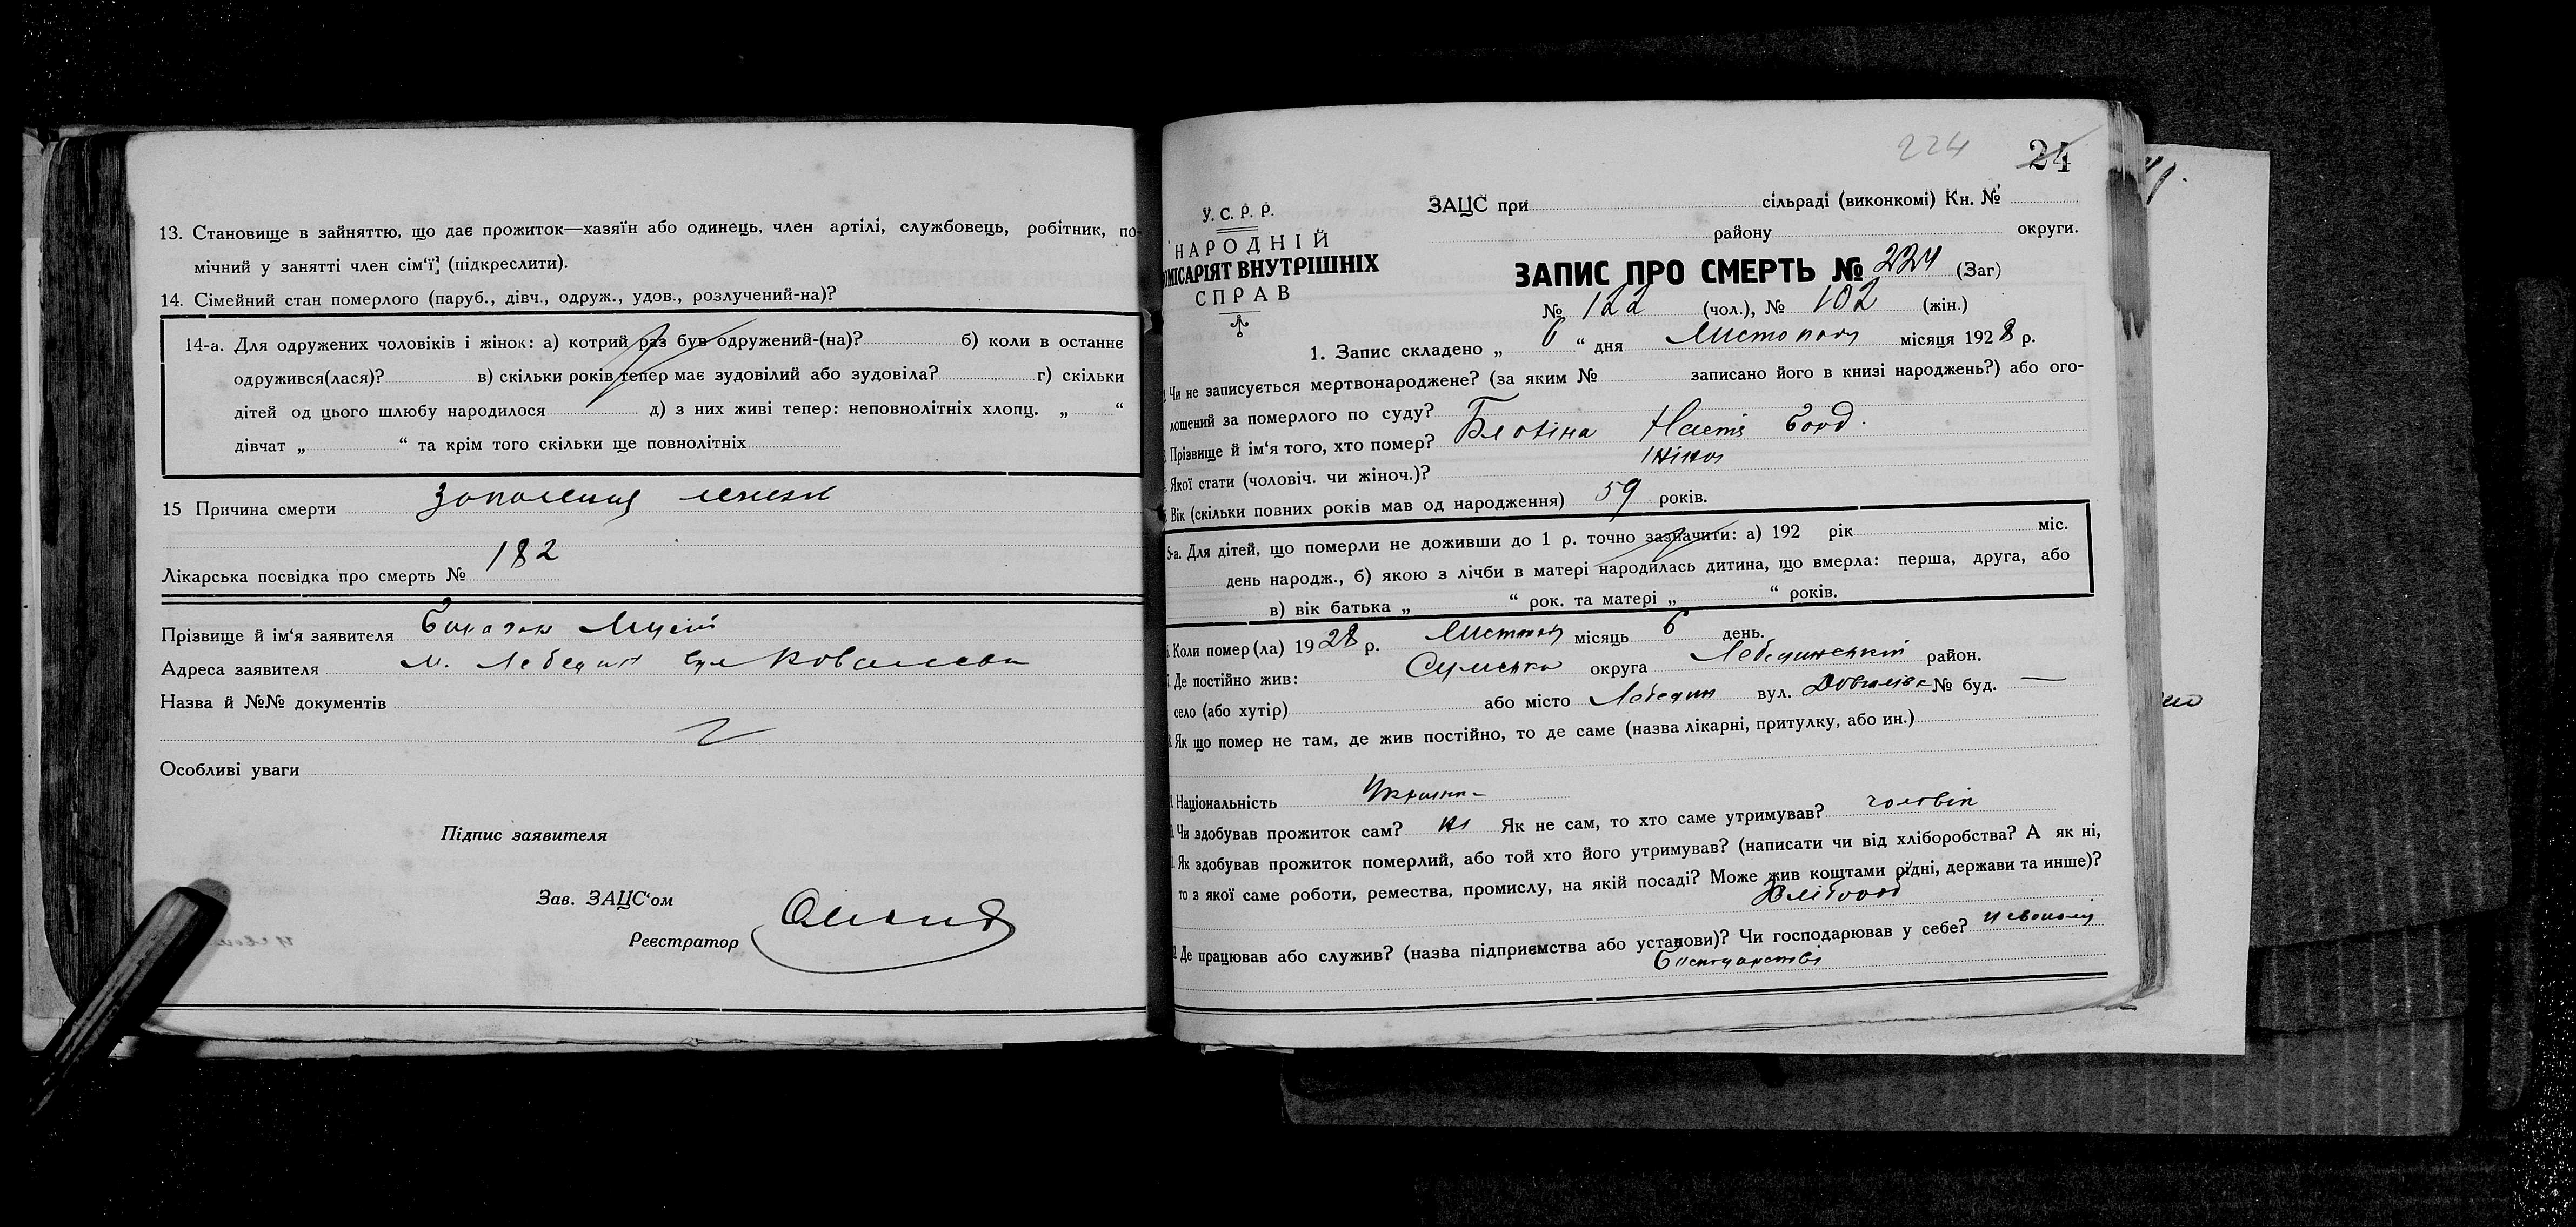 13. Становище в зайняттю, що дає прожиток—хазяїн або одинець, член артілі, службовець, робітник, по-
мічний у занятті член сім‘ї, (підкреслити).
14. Сімейний стан померлого (паруб., дівч., одруж., удов., розлучений-на)?
14-а. Для одружених чоловіків і жінок: а) котрий раз був одружений-(на)? б) коли в останнє
одружився(лася)? в) скільки років тепер має зудовілий або зудовіла? г) скільки
дітей од цього шлюбу народилося д) з них живі тепер: неповнолітніх хлопц. „ “
дівчат „ “ та крім того скільки ще повнолітніх
15 Причина смерти запалення легень
Лікарська посвідка про смерть № 182
Прізвище й ім‘я заявителя
Адреса заявителя м. Лебедин вул
Назва й №№ документів
Особливі уваги
Підпис заявителя
Зав. ЗАЦС‘ом
Реєстратор
224
24
У. С. Р. Р.
НАРОДНІЙ
ОМІСАРІЯТ ВНУТРІШНІХ
СПРАВ
ЗАЦС при сільраді (виконкомі) Кн. №
району округи.
ЗАПИС ПРО СМЕРТЬ № 224 (Заг)
№ 122 (чол.), № 102 (жін.)
1. Запис складено „ 6 “ дня Листопад місяця 1928 р.
Чи не записується мертвонароджене? (за яким № записано його в книзі народжень?) або ого-
лошений за померлого по суду?
Прізвище й ім‘я того, хто помер? Настя
Якої стати (чоловіч. чи жіноч.)? жіноч
Вік (скільки повних років мав од народження) 59 років.
5-а. Для дітей, що померли не доживши до 1 р. точно зазначити: а) 192 рік міс.
день народж., б) якою з лічби в матері народилась дитина, що вмерла: перша, друга, або
в) вік батька „ “ рок. та матері „ “ років.
Коли помер(ла) 1928 р. Листопад місяць 6 день.
Де постійно жив: Сумська округа Лебединський район.
село (або хутір) або місто Лебедин вул. № буд. —
Як що помер не там, де жив постійно, то де саме (назва лікарні, притулку, або ин.)
Національність Українк-
Чи здобував прожиток сам? ні Як не сам, то хто саме утримував? чоловік
Як здобував прожиток померлий, або той хто його утримував? (написати чи від хліборобства? А як ні,
то з якої саме роботи, ремества, промислу, на якій посаді? Може жив коштами рідні, держави та инше)?
Хлібороб
Де працював або служив? (назва підприємства або установи)? Чи господарював у себе? у своєму
господарстві